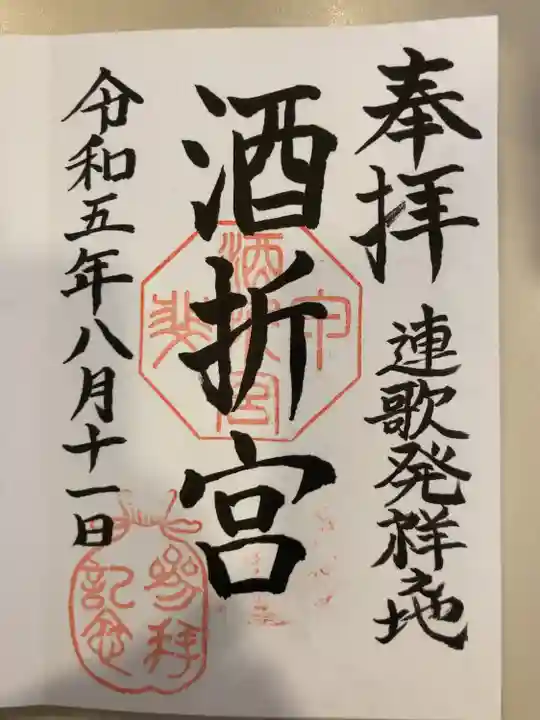 奉拝
連歌発祥地
酒折宮
甲斐
酒折宮
令和五年八月十一日
参拝
記念